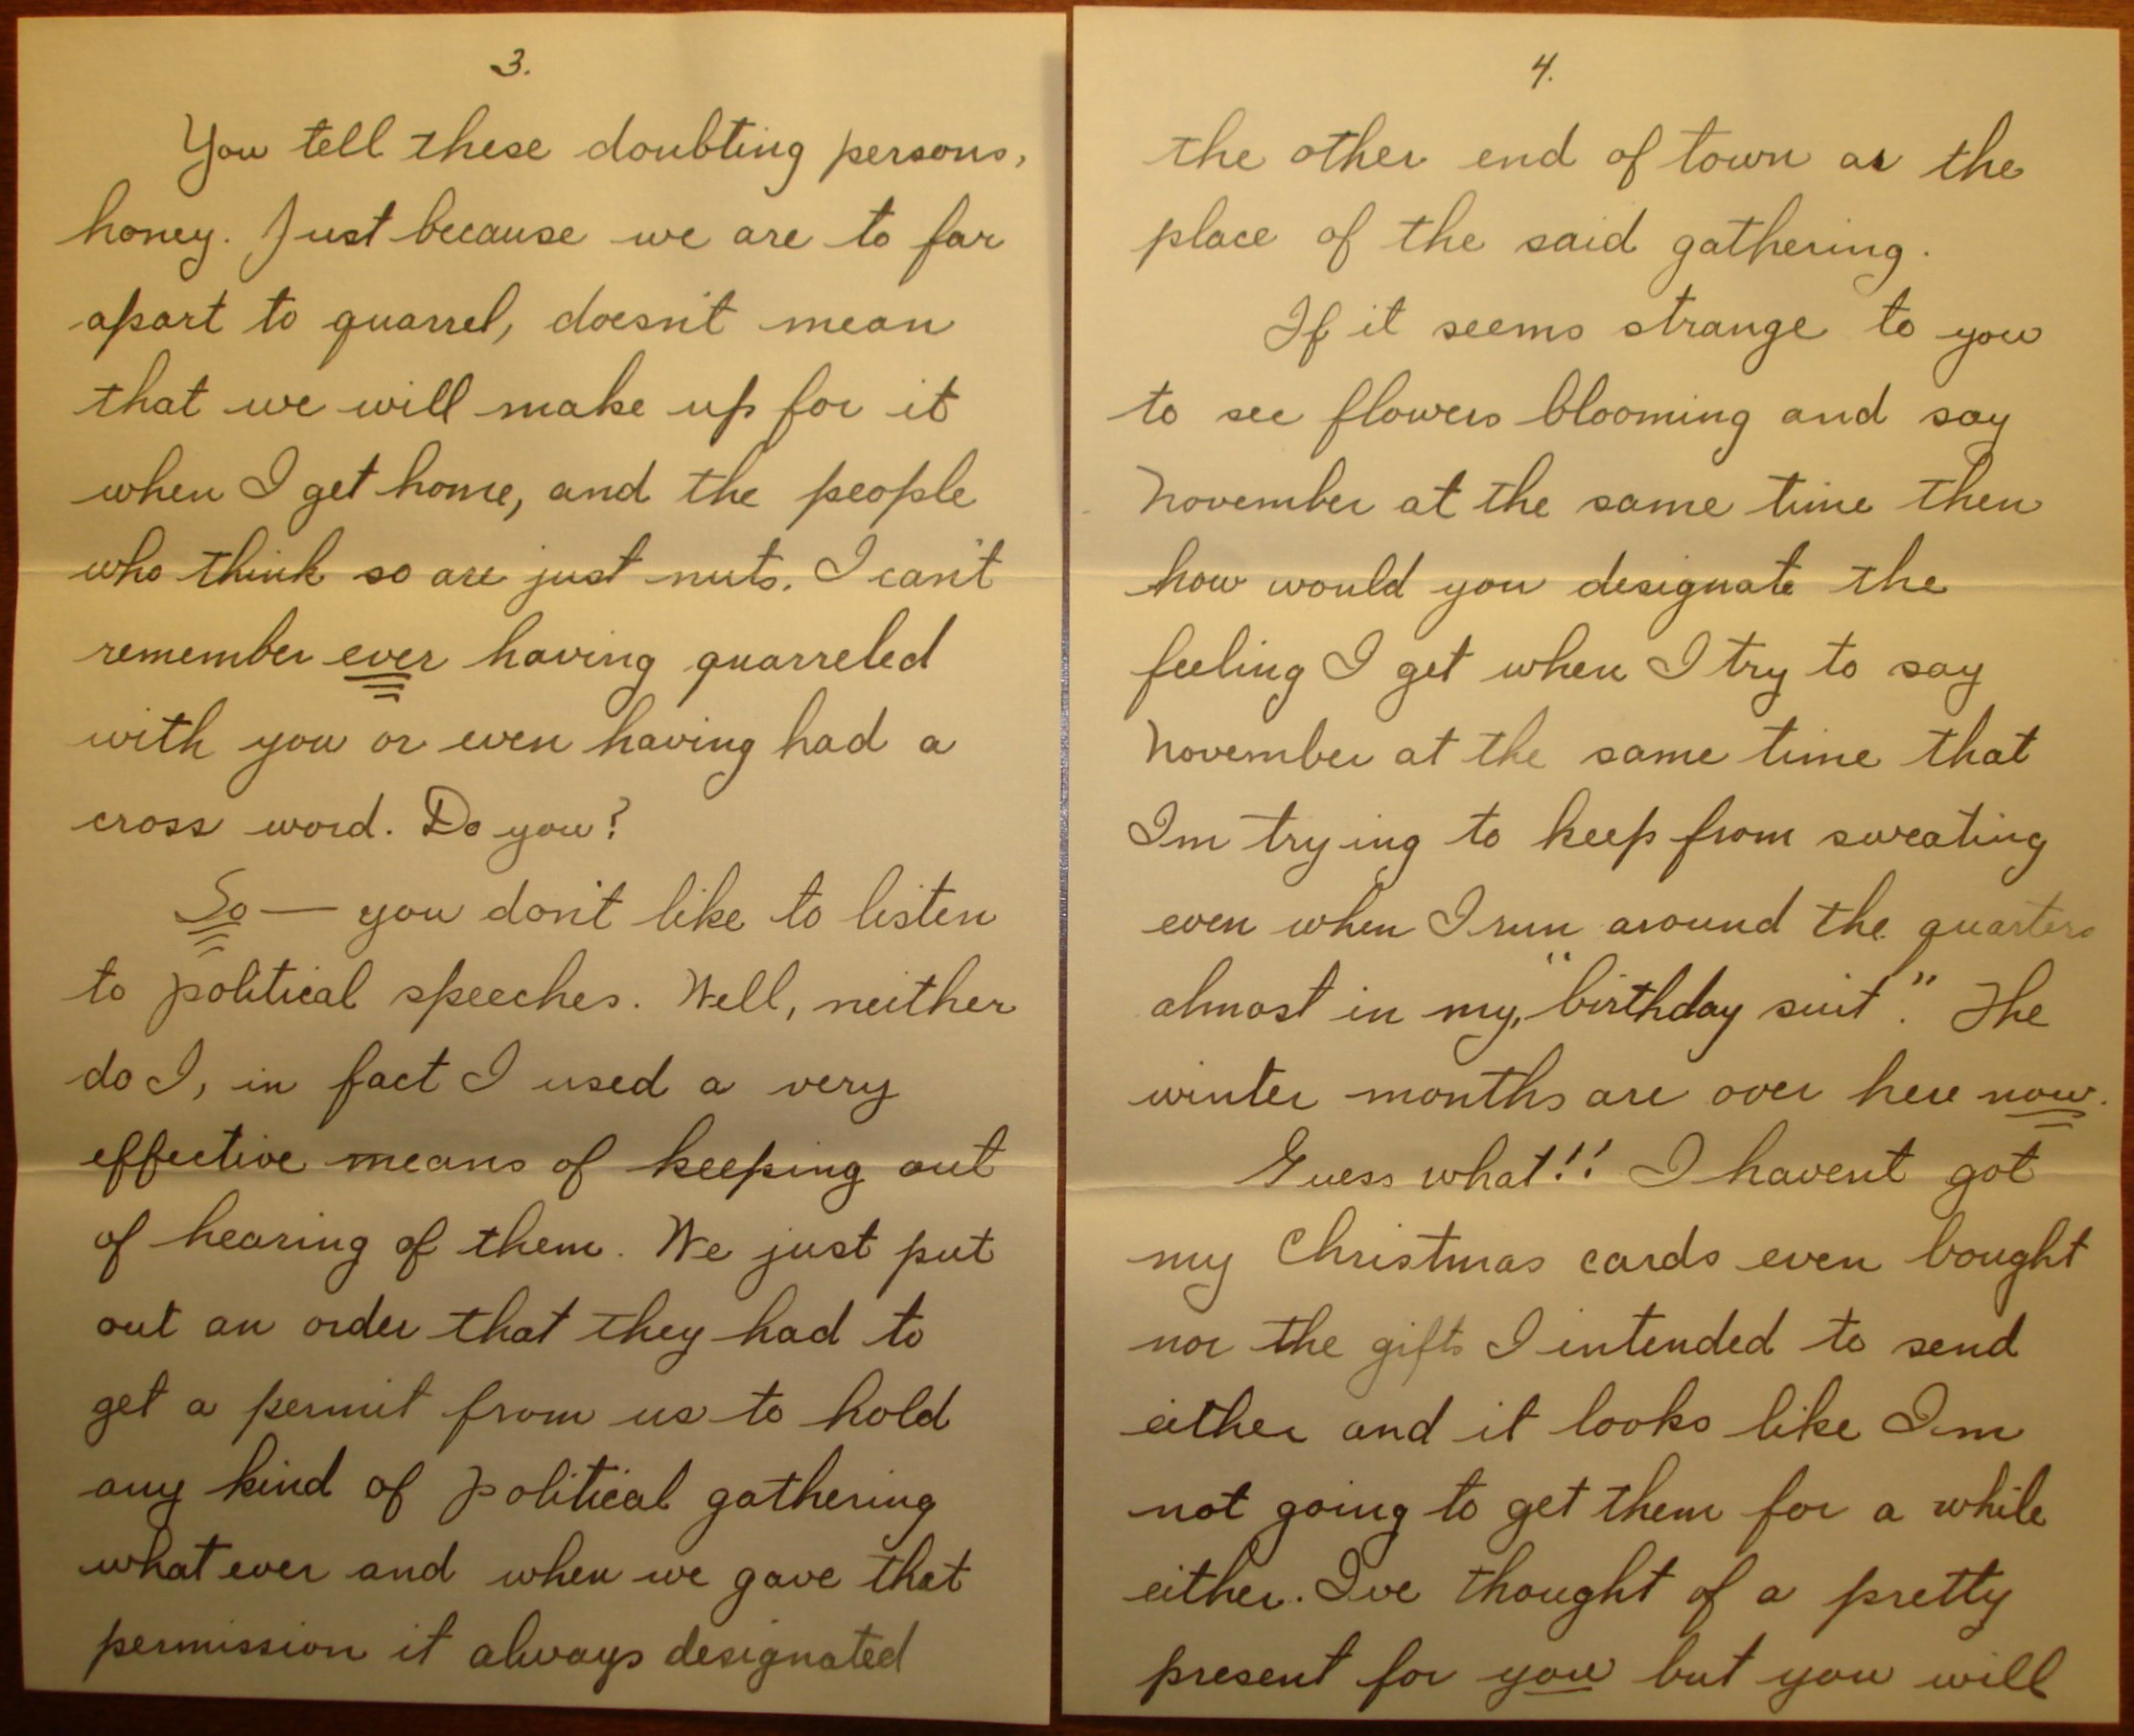 3.
You tell these doubting persons,
honey. Just because we are to far
apart to quarrel, doesn't mean
that we will make up for it
when I get home, and the people
who think so are just nuts. I can't
remember ever having quarreled
with you or even having had a
cross word. Do you?
So — you don't like to listen
to political speeches. Well, neither
do I, in fact I used a very
effective means of keeping out
of hearing of them. We just put
out an order that they had to
get a permit from us to hold
any kind of political gathering
what ever and when we gave that
permission it always designated
4.
the other end of town as the
place of the said gathering.
If it seems strange to you
to see flowers blooming and say
November at the same time then
how would you designate the
feeling I get when I try to say
November at the same time that
Im trying to keep from sweating
even when I run around the quarters
almost in my, "birthday suit". The
winter months are over here now.
Guess what!! I havent got
my Christmas cards even bought
nor the gifts I intended to send
either and it looks like Im
not going to get them for a while
either. Ive thought of a pretty
present for you but you will